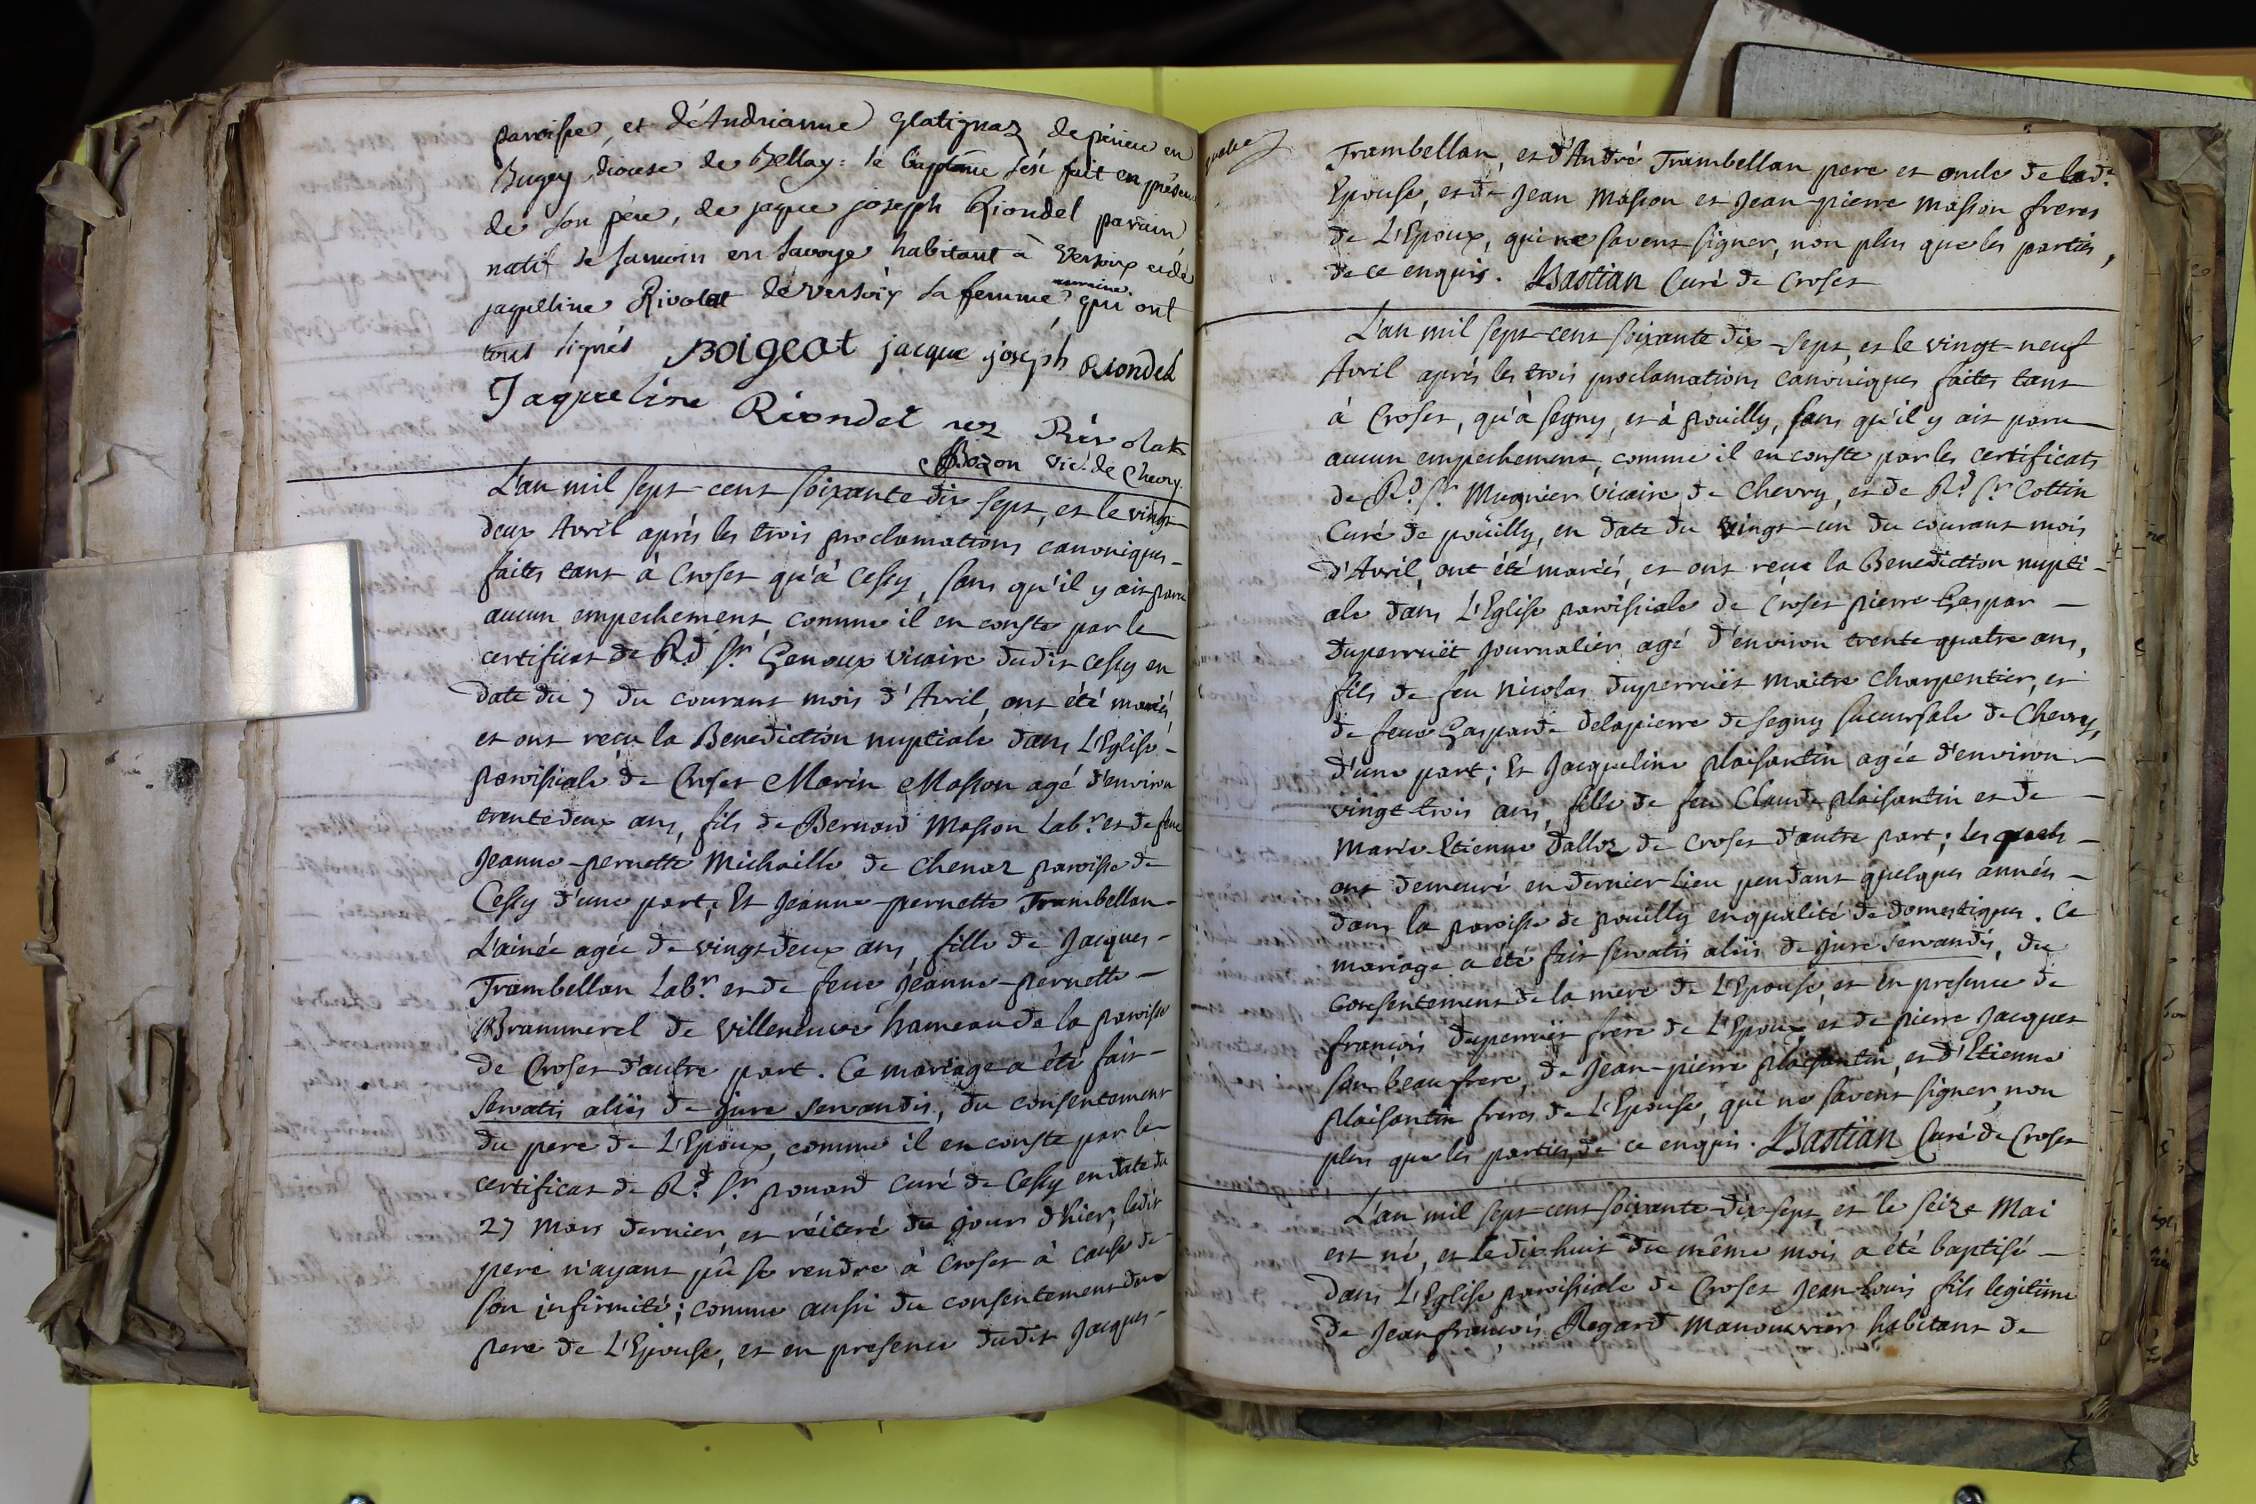 paroisse, et d'Andrianne Glatignaz de périeu en
Bugey diocèse de Bellay: le baptême s'est fait en présence
de son père, de jaque joseph Riondel parain
natif de samoin en savoye habitant à Versoix et de
jaqueline Rivolat de versoix sa femme maraine, qui ont
tous signés Boigeot jacque joséph Riondel
Jaqueline Riondel nez Rivolat
Bozon vic. de Chevry
L'an mil sept-cent soixante dix sept, et le vingt-
deux Avril après les trois proclamations canoniques
faites tant à Croset qu'à Cessy, sans qu'il y ait paru
aucun empechement comme il en conste par le
certificat de Rd Sr Genoux vicaire dudit Cessy en
date du 7 du courant mois d'Avril, ont été mariés,
et ont reçu la Benediction nuptiale dans L'Eglise
paroissiale de Croset Marin Masson agé d'environ
trente deux ans, fils de Bernard Masson Labr. et de feue
Jeanne-pernette Michaille de Chenaz paroisse de
Cessy d'une part; Et Jeanne-pernette Trambellan
L'ainée agée de vingt deux ans, fille de Jacques
Trambellan Labr. et de feue Jeanne-pernette
Brammerel de Villeneuve hameau de la paroisse
de Croset d'autre part. Ce mariage a été fait
servatis aliis de jure servandis, du consentement
du pere de L'Epoux, comme il en conste par le
certificat de Rd Sr ponard curé de Cessy en date du
27 Mars dernier, et réiteré du jour d'hier, ledit
pere n'ayant pû se rendre à Croset à cause de
son infirmité; comme aussi du consentement du
pere de L'Epouse, et en presence dudit Jacques
Trambellan, et d'André Trambellan pere et oncle de lade.
Epouse, et de Jean Masson et Jean-pierre Masson freres
de L'Epoux, qui ne savent signer, non plus que les parties,
de ce enquis. Bastian Curé de Croset
L'an mil sept-cent soixante dix-sept, et le vingt-neuf
Avril après les trois proclamations canoniques faites tant
à Croset, qu'à Segny, et à pouilly, sans qu'il y ait paru
aucun empechement, comme il en conste par les certificats
de Rd Sr Mugnier Vicaire de Chevry, et de Rd Sr Cottin
Curé de poüilly, en date du vingt-un du courant mois
d'Avril, ont été mariés, et ont reçu la Benediction nupti-
ale dans L'Eglise paroissiale de Croset pierre Gaspar
Duperruët Journalier agé d'environ trente quatre ans,
fils de feu Nicolas Duperruët Maitre Charpentier, et
de feue Gasparde Delapierre de Segny Succursale de Chevry,
d'une part; Et Jacqueline plaisantin agée d'environ
vingt-trois ans, fille de feu Claude plaisantin et de
Marie-Etienne Dalloz de Croset d'autre part; les quels
ont demeuré en dernier Lieu pendant quelques années
dans la paroisse de pouilly en qualité de domestiques. Ce
mariage a été fait servatis aliis de jure servandis, du
consentement de la mere de L'Epouse, et en presence de
françois Duperruët frère de L'Epoux, et de pierre Jacques
son beaufrere, de Jean-pierre plaisantin, et d'Etienne
plaisantin freres de L'Epouse, qui ne savent signer, non
plus que les parties, de ce enquis. Bastian Curé de Croset
L'an mil sept-cent soixante-dix sept, et le seize Mai
est né, et le dix-huit du même mois a été baptisé
dans L'Eglise paroissiale de Croset Jean-Louis fils legitime
de Jean françois Regard Manouvrier habitant de